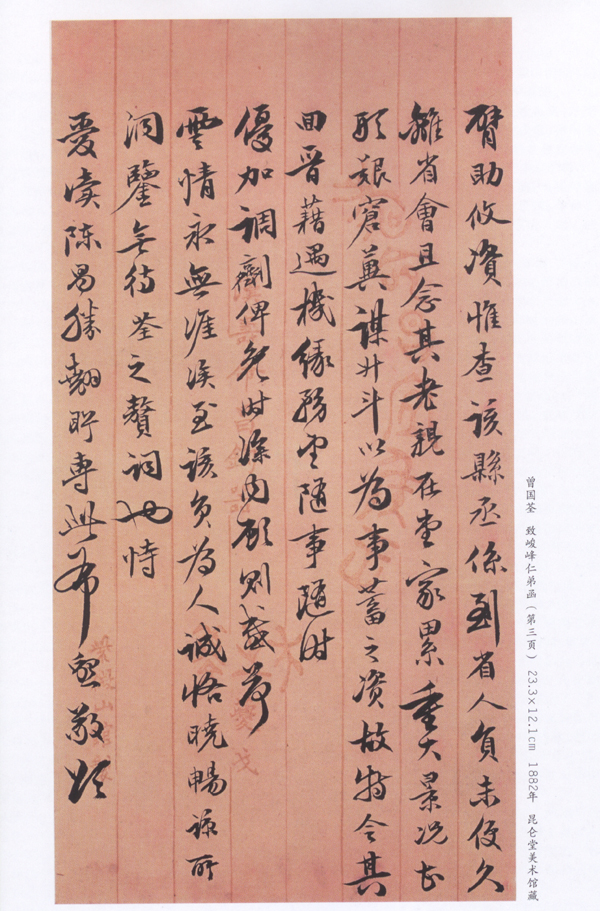 臂助攸資惟查該縣丞係到省人員未便久
離省會且念其老親在堂家累重大景况甚
形艱窘兼謀升斗以為事蓄之資故特令其
回晉藉遇機緣務望隨事隨时
優加調劑俾免时深内顧則感荷
雲情永無涯涘至該員為人誠恪曉暢諒所
洞鑒無待荃之贅詞也恃
愛瀆陳曷勝翹盼專此布懇敬頌
曾国荃 致峻峰仁弟函（第三页） 23.3×12.1cm 1882年 昆仑堂美术馆藏